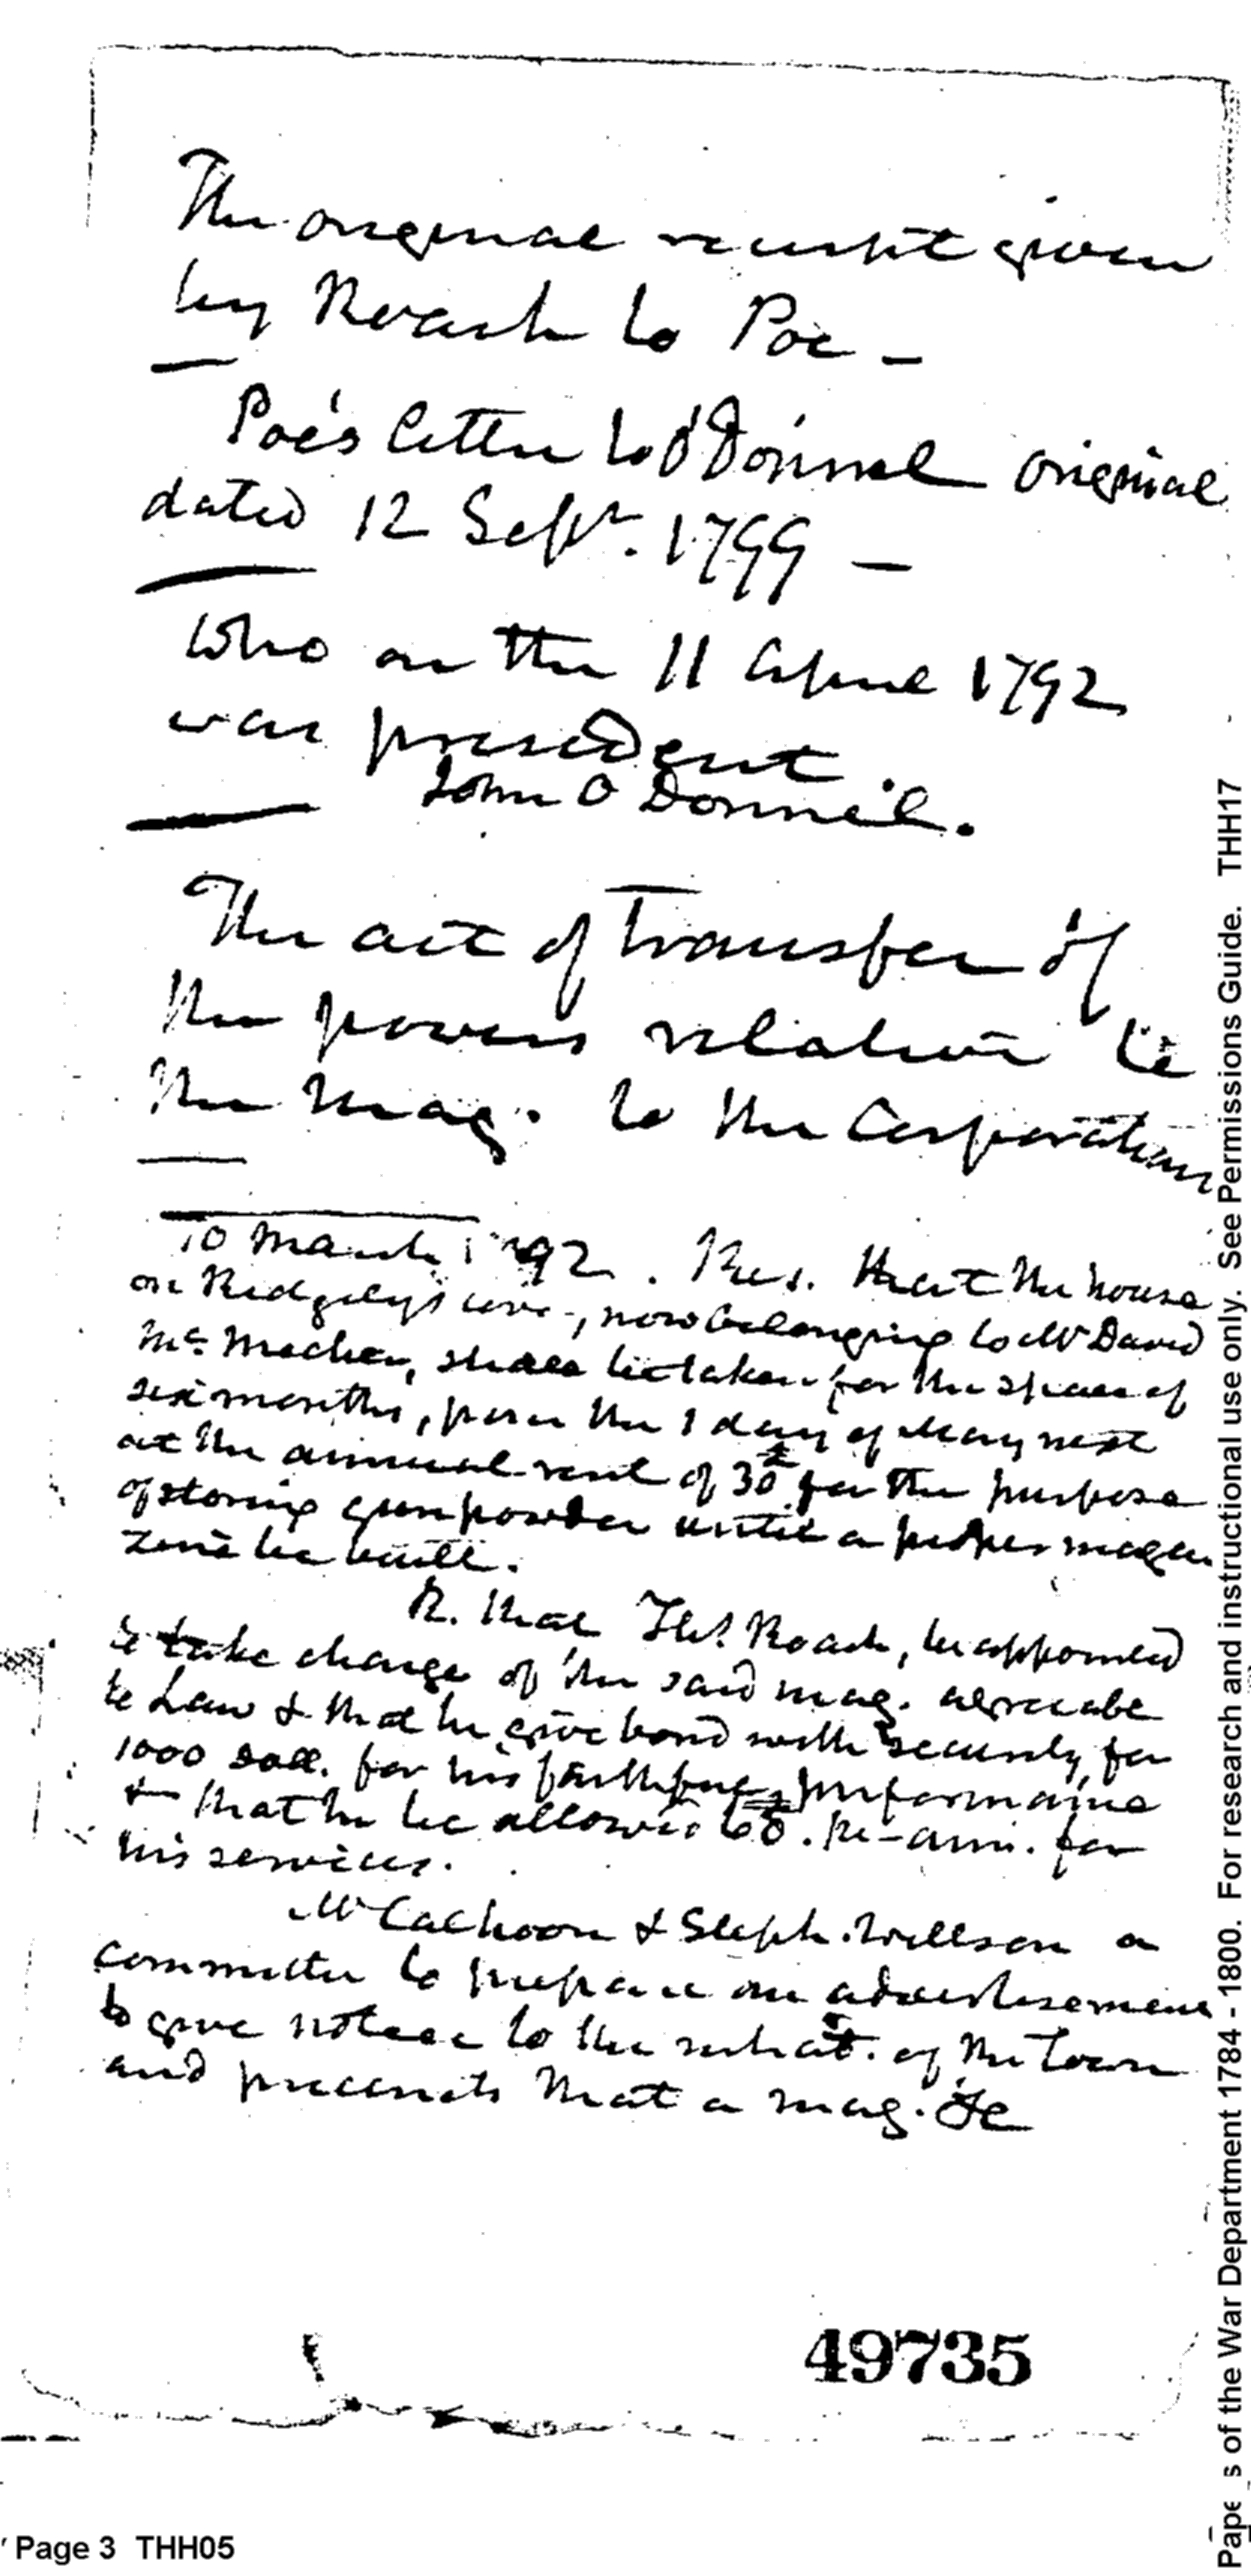 The original receipt given
by Roach to Poe -
Poe's letter to O'Donnel original
dated 12 Sepr. 1799 -
Who on the 11 April 1792
was president.
John O Donnel.
The act of Transfer of
the powers relative to
the Mag. to the Corporation
10 March 1792. Res. that the house
on Ridgely's cove, now belonging to Mr David
Mc. Mechen, shall be taken for the space of
six months, from the 1 day of May next
at the annual rent of 30 for the purpose
of storing gunpowder until a proper maga
zine be built.
R. that Ths. Roach, be appointed
to take charge of the said mag. agreeabe
to Law & that he give bond with security for
1000 doll. for his faithful performaince
& that he be allowed pr ann. for
his services.
Mr Calhoon & Steph. Willson a
committee to prepare an advertisement
to give notice to the inhabt. of the Town
and precincts that a mag. &c
49735
Page 3 THH05
s of the War Department 1784 - 1800. For research and instructional use only. See Permissions Guide. THH17